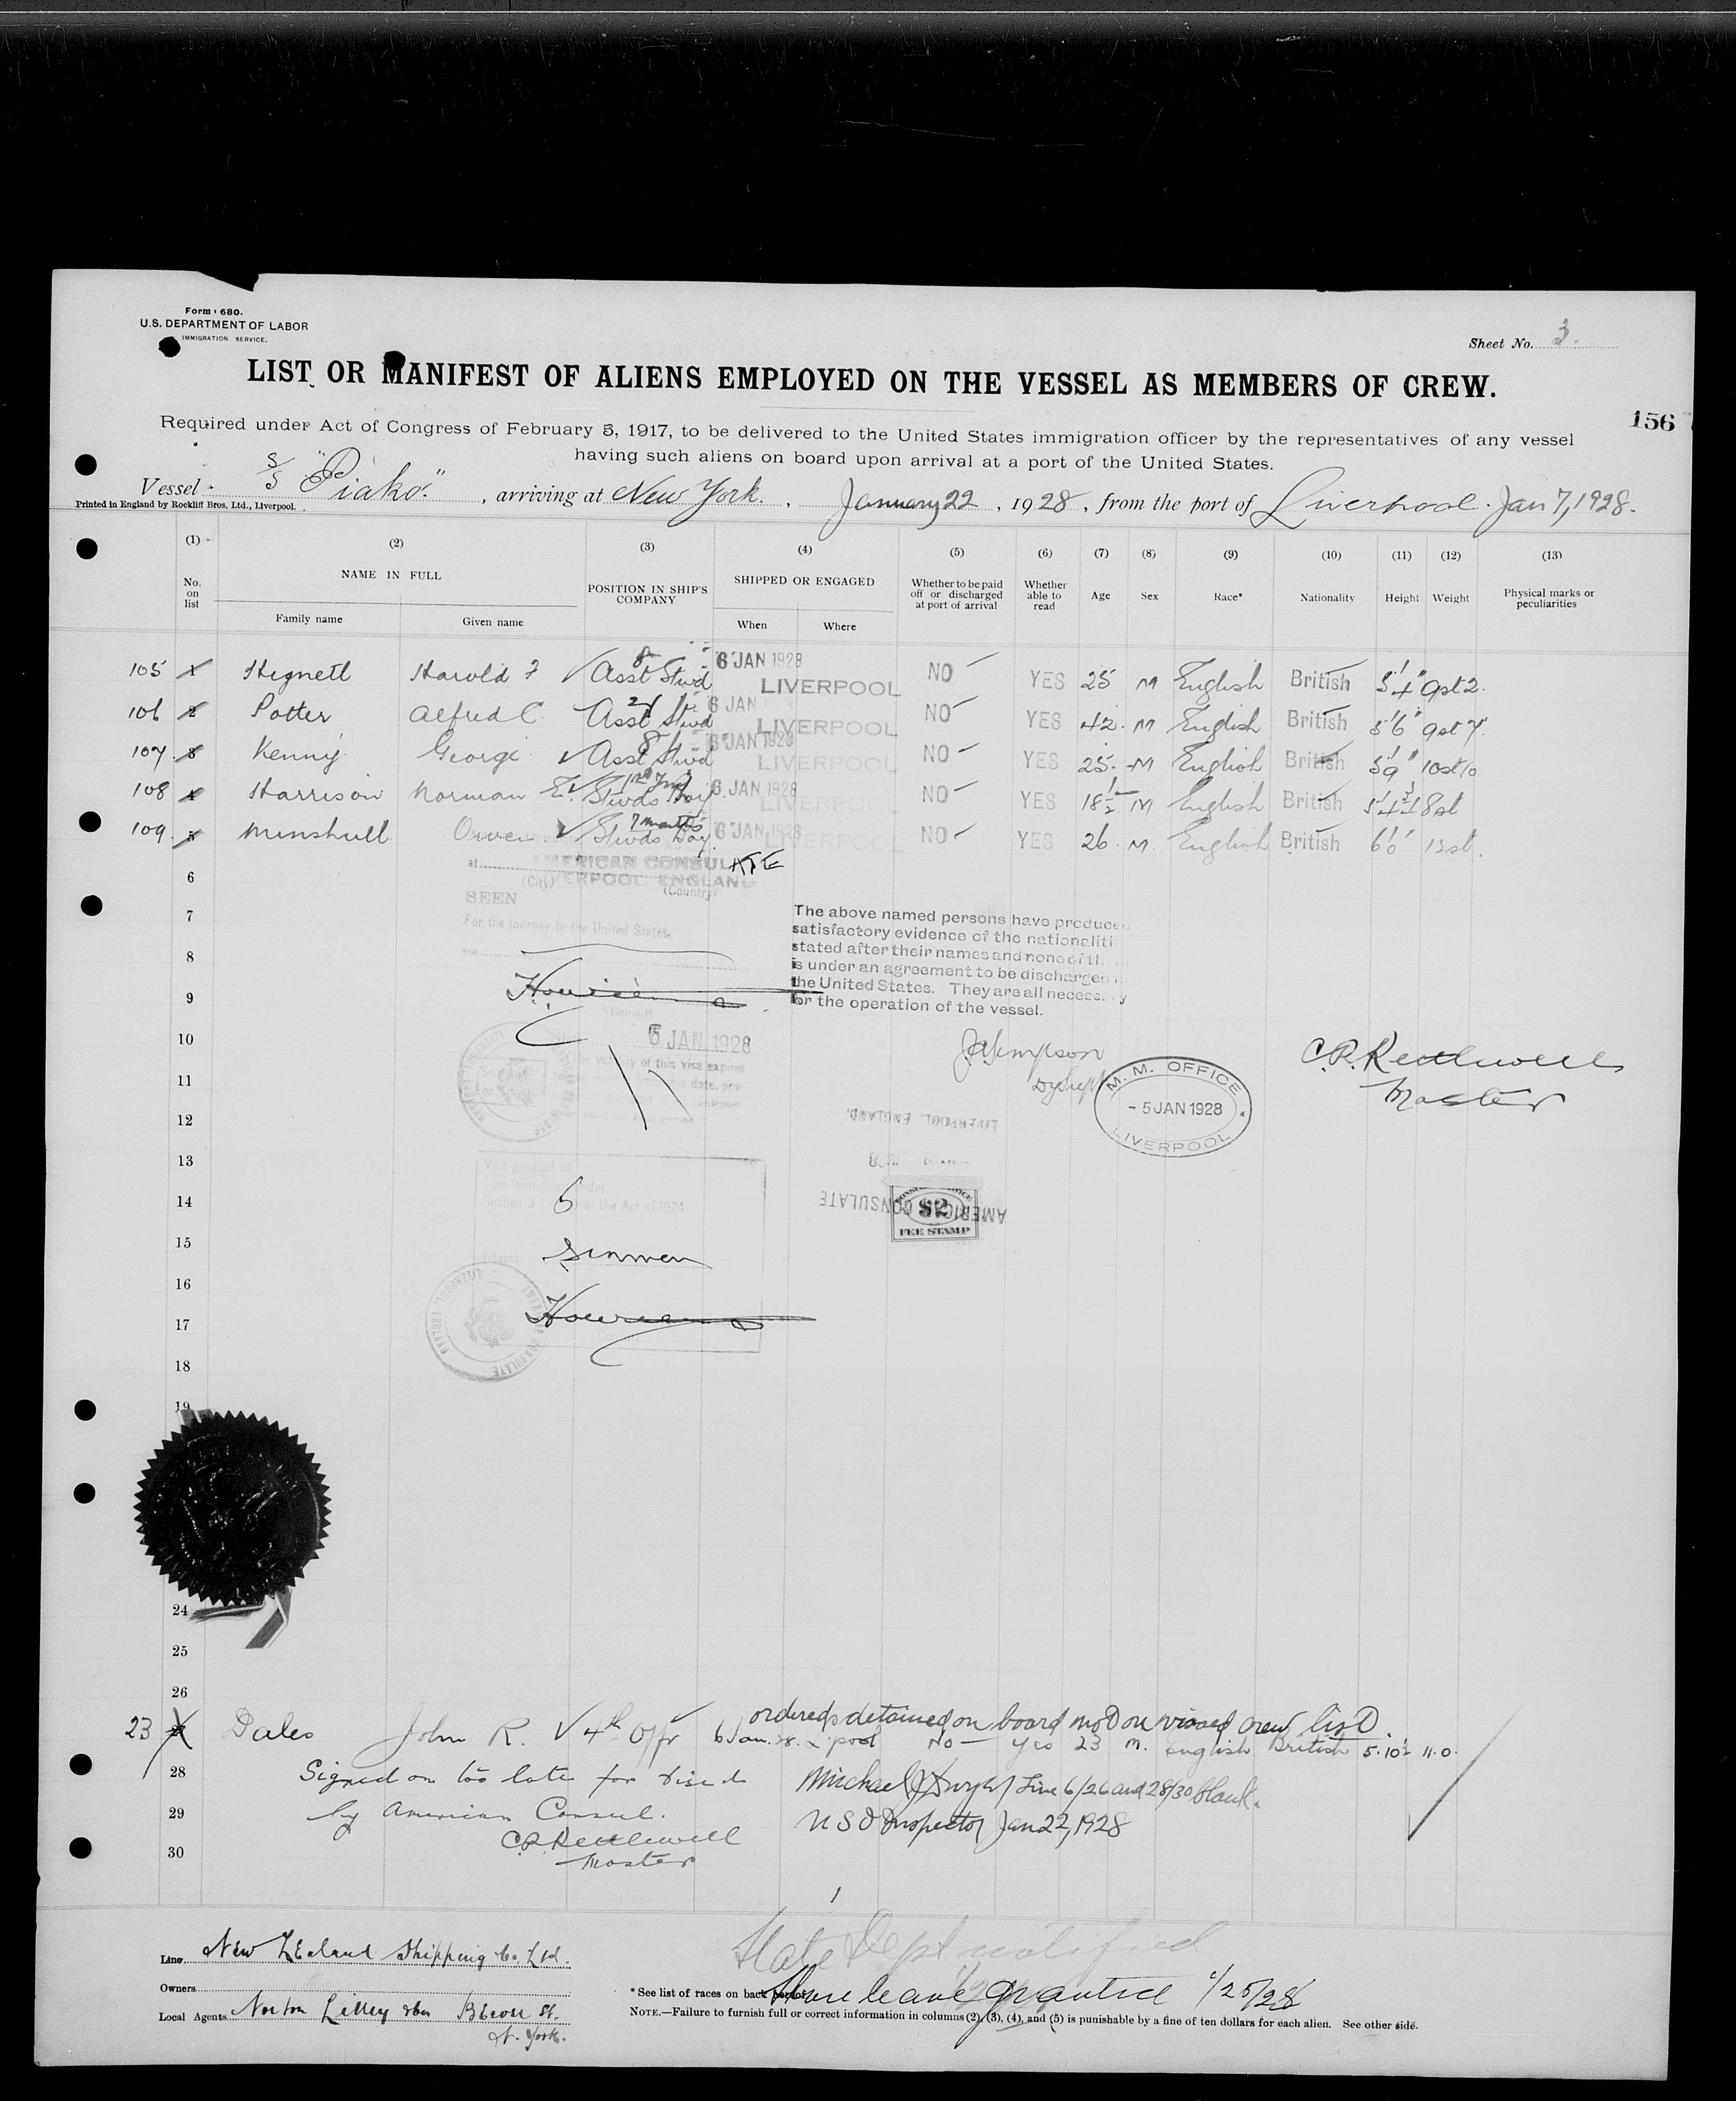 Form 680.
U.S. DEPARTMENT OF LABOR
IMMIGRATION SERVICE.
Sheet No. 3.
LIST OR MANIFEST OF ALIENS EMPLOYED ON THE VESSEL AS MEMBERS OF CREW.
156
Required under Act of Congress of February 5, 1917, to be delivered to the United States immigration officer by the representatives of any vessel
having such aliens on board upon arrival at a port of the United States.
Vessel S/S "Piako." , arriving at New York. , January 22 , 1928 , from the port of Liverpool. Jan 7, 1928.
Printed in England by Rockliff Bros. Ltd., Liverpool.
(1) (2) (3) (4) (5) (6) (7) (8) (9) (10) (11) (12) (13)
No. on list NAME IN FULL POSITION IN SHIP'S COMPANY SHIPPED OR ENGAGED Whether to be paid off or discharged at port of arrival Whether able to read Age Sex Race* Nationality Height Weight Physical marks or peculiarities
Family name Given name When Where
105 1 Hignett Harold F ✓ Asst Stwd 8 6 JAN 1928 LIVERPOOL NO YES 25 M English British 5'4" 9st 2.
106 2 Potter Alfred C. Asst Stwd 6 JAN LIVERPOOL NO YES 42. M English British 5'6" 9st 7.
107 3 Kenny George ✓ Asst Stwd 6 JAN 1928 LIVERPOOL NO YES 25. M English British 5'9" 10st 10
108 4 Harrison Norman E. ✓ Stwds Boy 6 JAN 1928 LIVERPOOL NO YES 18½ M English British 8st
109 5 Minshull Owen ✓ Stwds Boy 7 months 6 JAN 1928 LIVERPOOL NO YES 26. M. English British 6'0" 13st.
at AMERICAN CONSULATE
(City) LIVERPOOL, ENGLAND (Country)
SEEN
For the journey to the United States.
6
7
8
9
The above named persons have produce
satisfactory evidence of the nationaliti
stated after their names and none of th
is under an agreement to be discharged
the United States. They are all necess y
for the operation of the vessel.
(Consul)
6 JAN. 1928
of this visa expires
date,
10
11
12
J A Simpson
Dy Supt
M. M. OFFICE
- 5 JAN 1928
LIVERPOOL
C.R. Kettlewell
Master
LIVERPOOL, ENGLAND.
13
14
15
16
17
18
19
Visa granted as
Section 3 (5) of the Act of 1924
Seamen
AMERICAN CONSULATE
$2
FEE STAMP
24
25
26
ordered detained on board not on visaed crew list.
23 Dales John R. ✓ 4th Offr 6 Jan. 28. L'pool No Yes 23 M. English British 5.10½ 11.0.
28 Signed on too late for visa
29 by American Consul.
C.R. Kettlewell
30 Master
Michael J Dwyer Line 6/26 and 28/30 blank.
U S I Inspector Jan 22, 1928
Line New Zealand Shipping Co. Ltd.
State Dept notified
Owners
*See list of races on back
Shore leave granted 1/25/28
Local Agents Norton Lilley & Co Beaver St.
N. York.
NOTE.—Failure to furnish full or correct information in columns (2), (3), (4), and (5) is punishable by a fine of ten dollars for each alien. See other side.